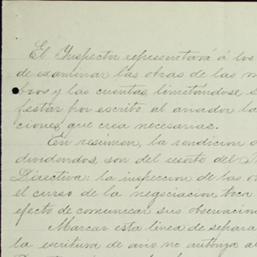 El Inspector representará á los
de examinar las obras de las m
bros y las cuentas limitándose, s
festar por escrito al aviador la
ciones que crea necesarias.
En resúmen, la rendicion d
dividendos, son del resorte del
Directiva: la inspeccion de las ob
el curso de la negociacion toca
efecto de comunicar sus observacion
Marcar esta línea de separa
la escritura de avío no autoriza al